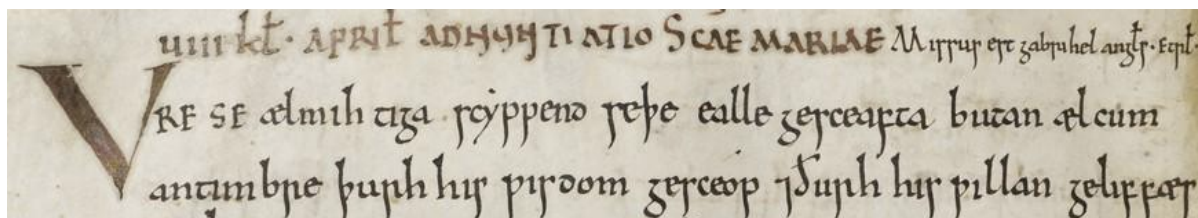 UIII kƚ· APRIƚ ADNUNTIATIO SCAE MARIAE Missus est gabrihel angƚs·
VRE SE ælmihtiga scẏppend seþe ealle gesceafta butan ælcum
antimbre þurh his ƿisdom gesceop ⁊ðurh his ƿillan geliffæs